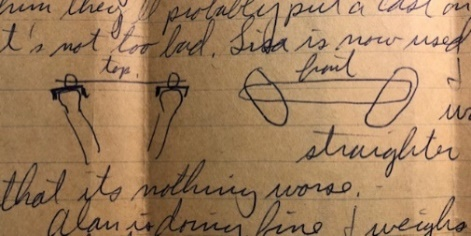 him they'll probably put a cast on
t's not too bad. Lisa is now used
top. front
straighter
that its nothing worse.
Alan is doing fine I weighs